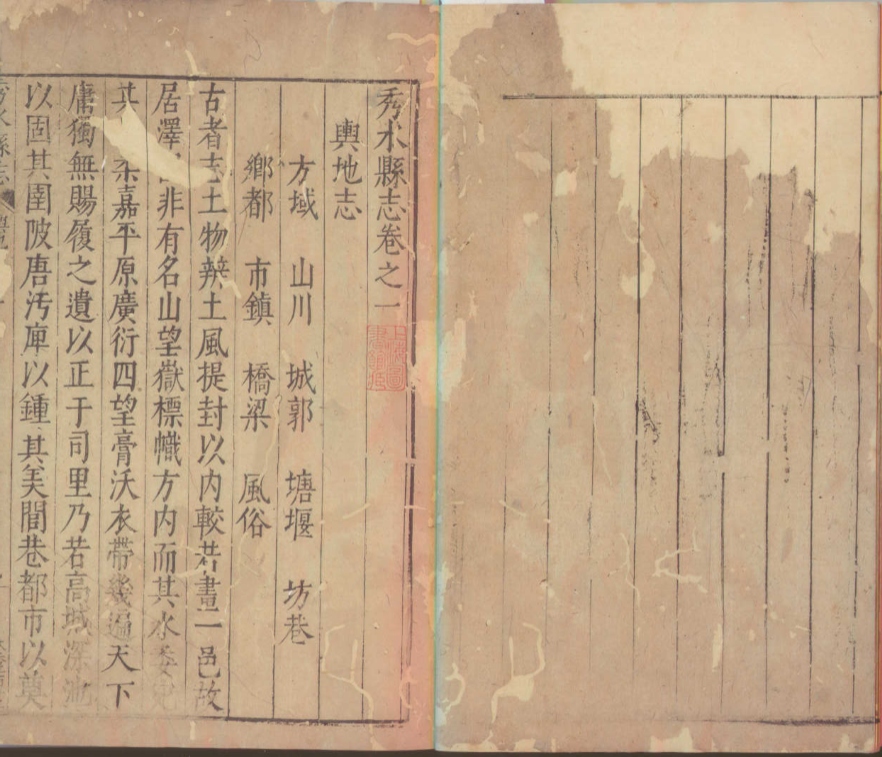 秀水縣志卷之一
輿地志
方域 山川 城郭 塘堰 坊巷
鄉都 市鎮 橋梁 風俗
古者志土物辨土風提封以内較若畫一邑故
居澤 非有名山望嶽標幟方内而其水委
其 禾嘉平原廣衍四望膏沃衣帶幾遍天下
庸獨無賜履之遺以正于司里乃若高城深池
以固其圉陂唐汚庳以鍾其美閭巷都市以奠
秀水縣志